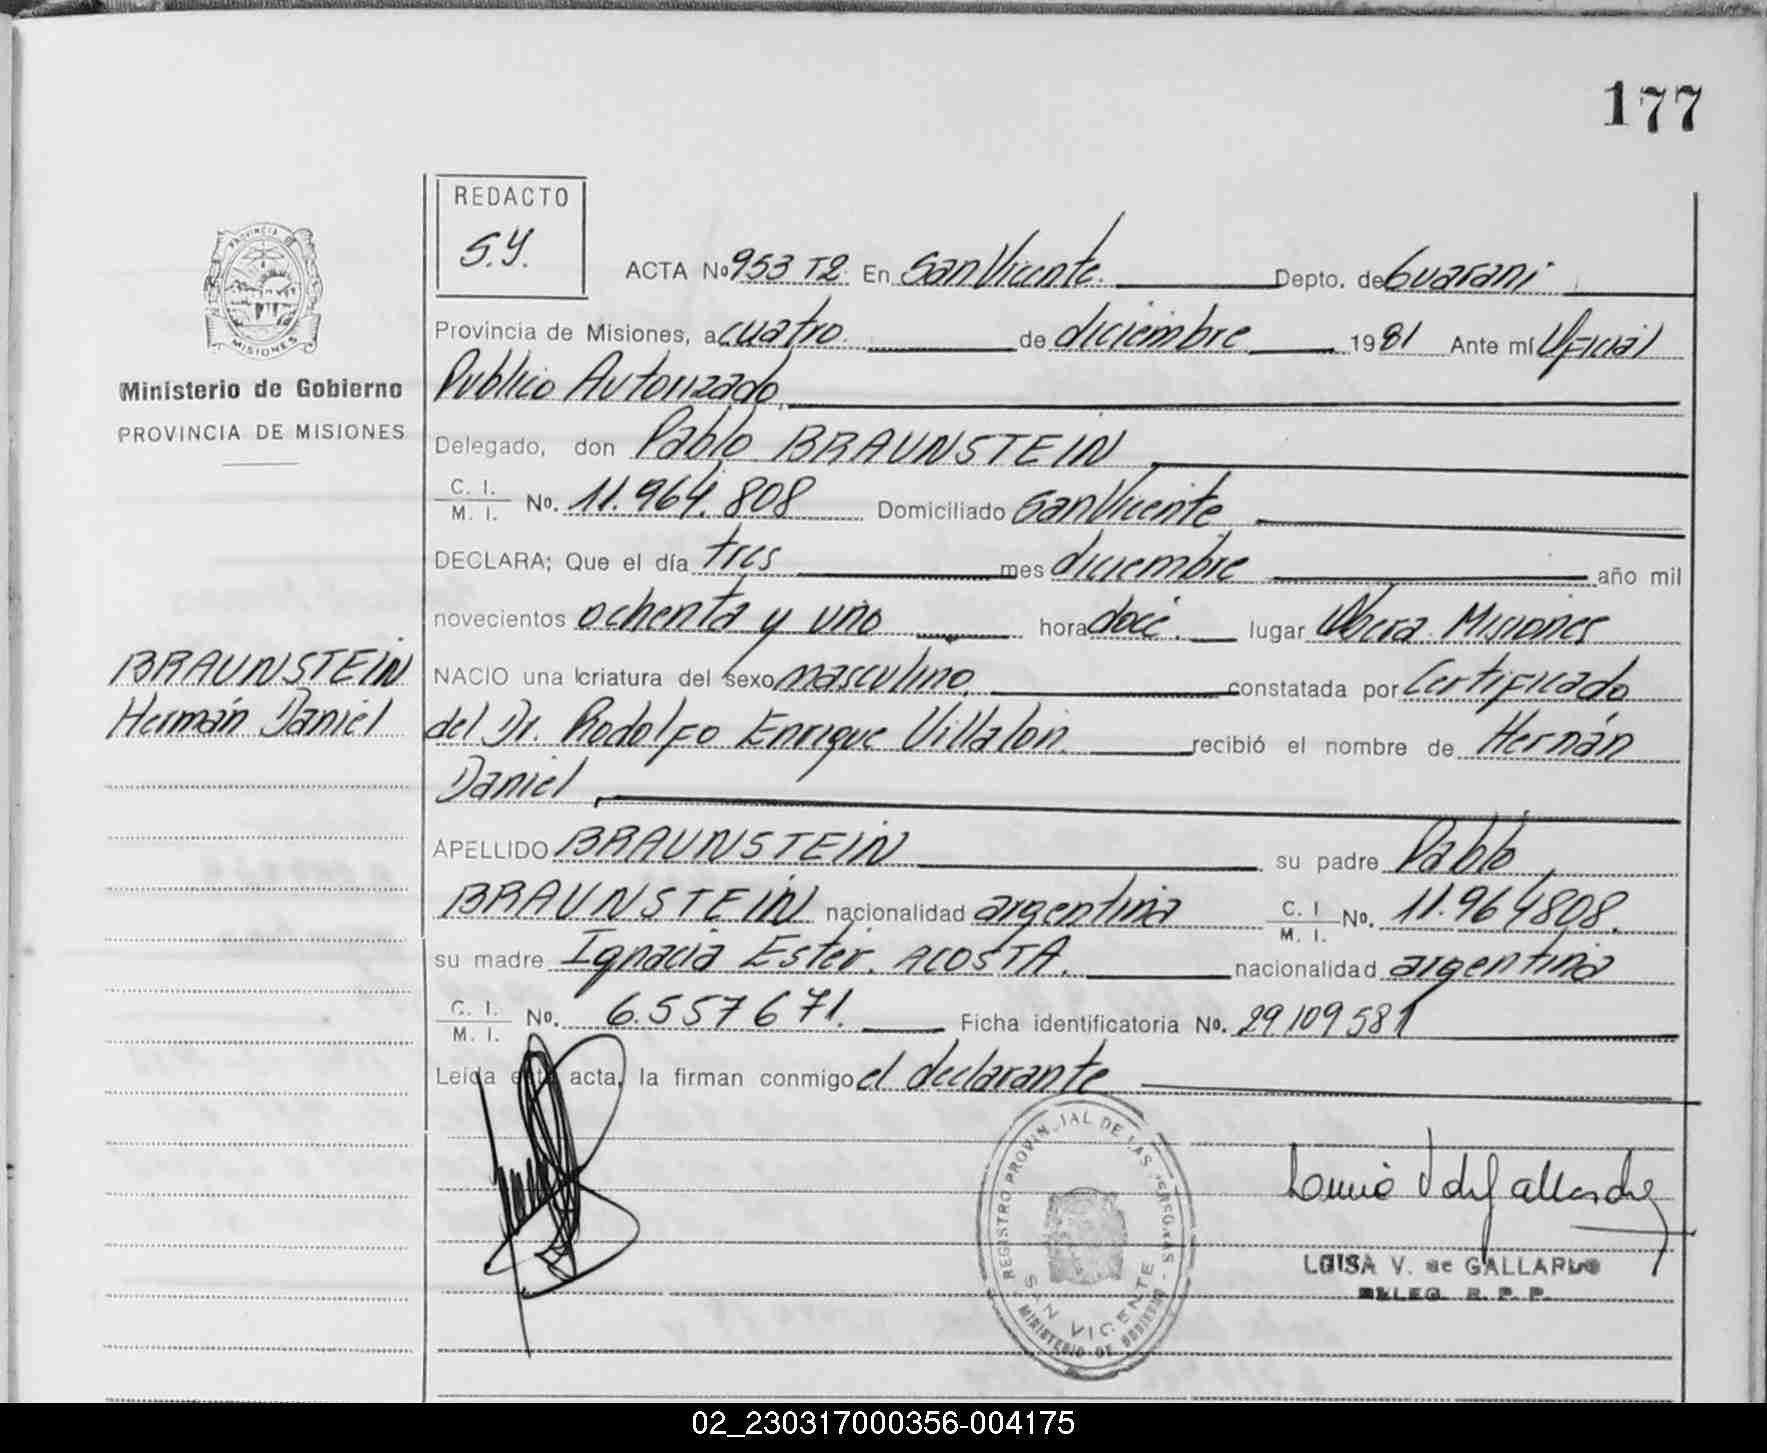 177
REDACTO
S.Y.
PROVINCIA DE
MISIONES
Ministerio de Gobierno
PROVINCIA DE MISIONES
ACTA No 953 T2. En San Vicente. Depto. de Guarani
Provincia de Misiones, a cuatro. de diciembre 1981 Ante mí Oficial
Publico Autorizado,
Delegado, don Pablo BRAUNSTEIN
C. I. / M. I. No. 11.964.808 Domiciliado San Vicente
DECLARA; Que el día tres mes diciembre año mil
novecientos ochenta y uno hora doce. lugar Obera Misiones
BRAUNSTEIN
Hernán Daniel
NACIO una criatura del sexo masculino, constatada por Certificado
del Dr. Rodolfo Enrique Villalón. recibió el nombre de Hernán
Daniel
APELLIDO BRAUNSTEIN su padre Pablo
BRAUNSTEIN nacionalidad argentina C. I / M. I. No. 11.964808.
su madre Ignacia Ester. ACOSTA. nacionalidad argentina
C. I. / M. I. No. 6.557671. Ficha identificatoria No. 29109581
Leida esta acta, la firman conmigo el declarante
REGISTRO PROVINCIAL DE LAS PERSONAS
SAN VICENTE
MINISTERIO DE GOBIERNO
LUISA V. de GALLARDO
DELEG. R. P. P.
02_230317000356-004175